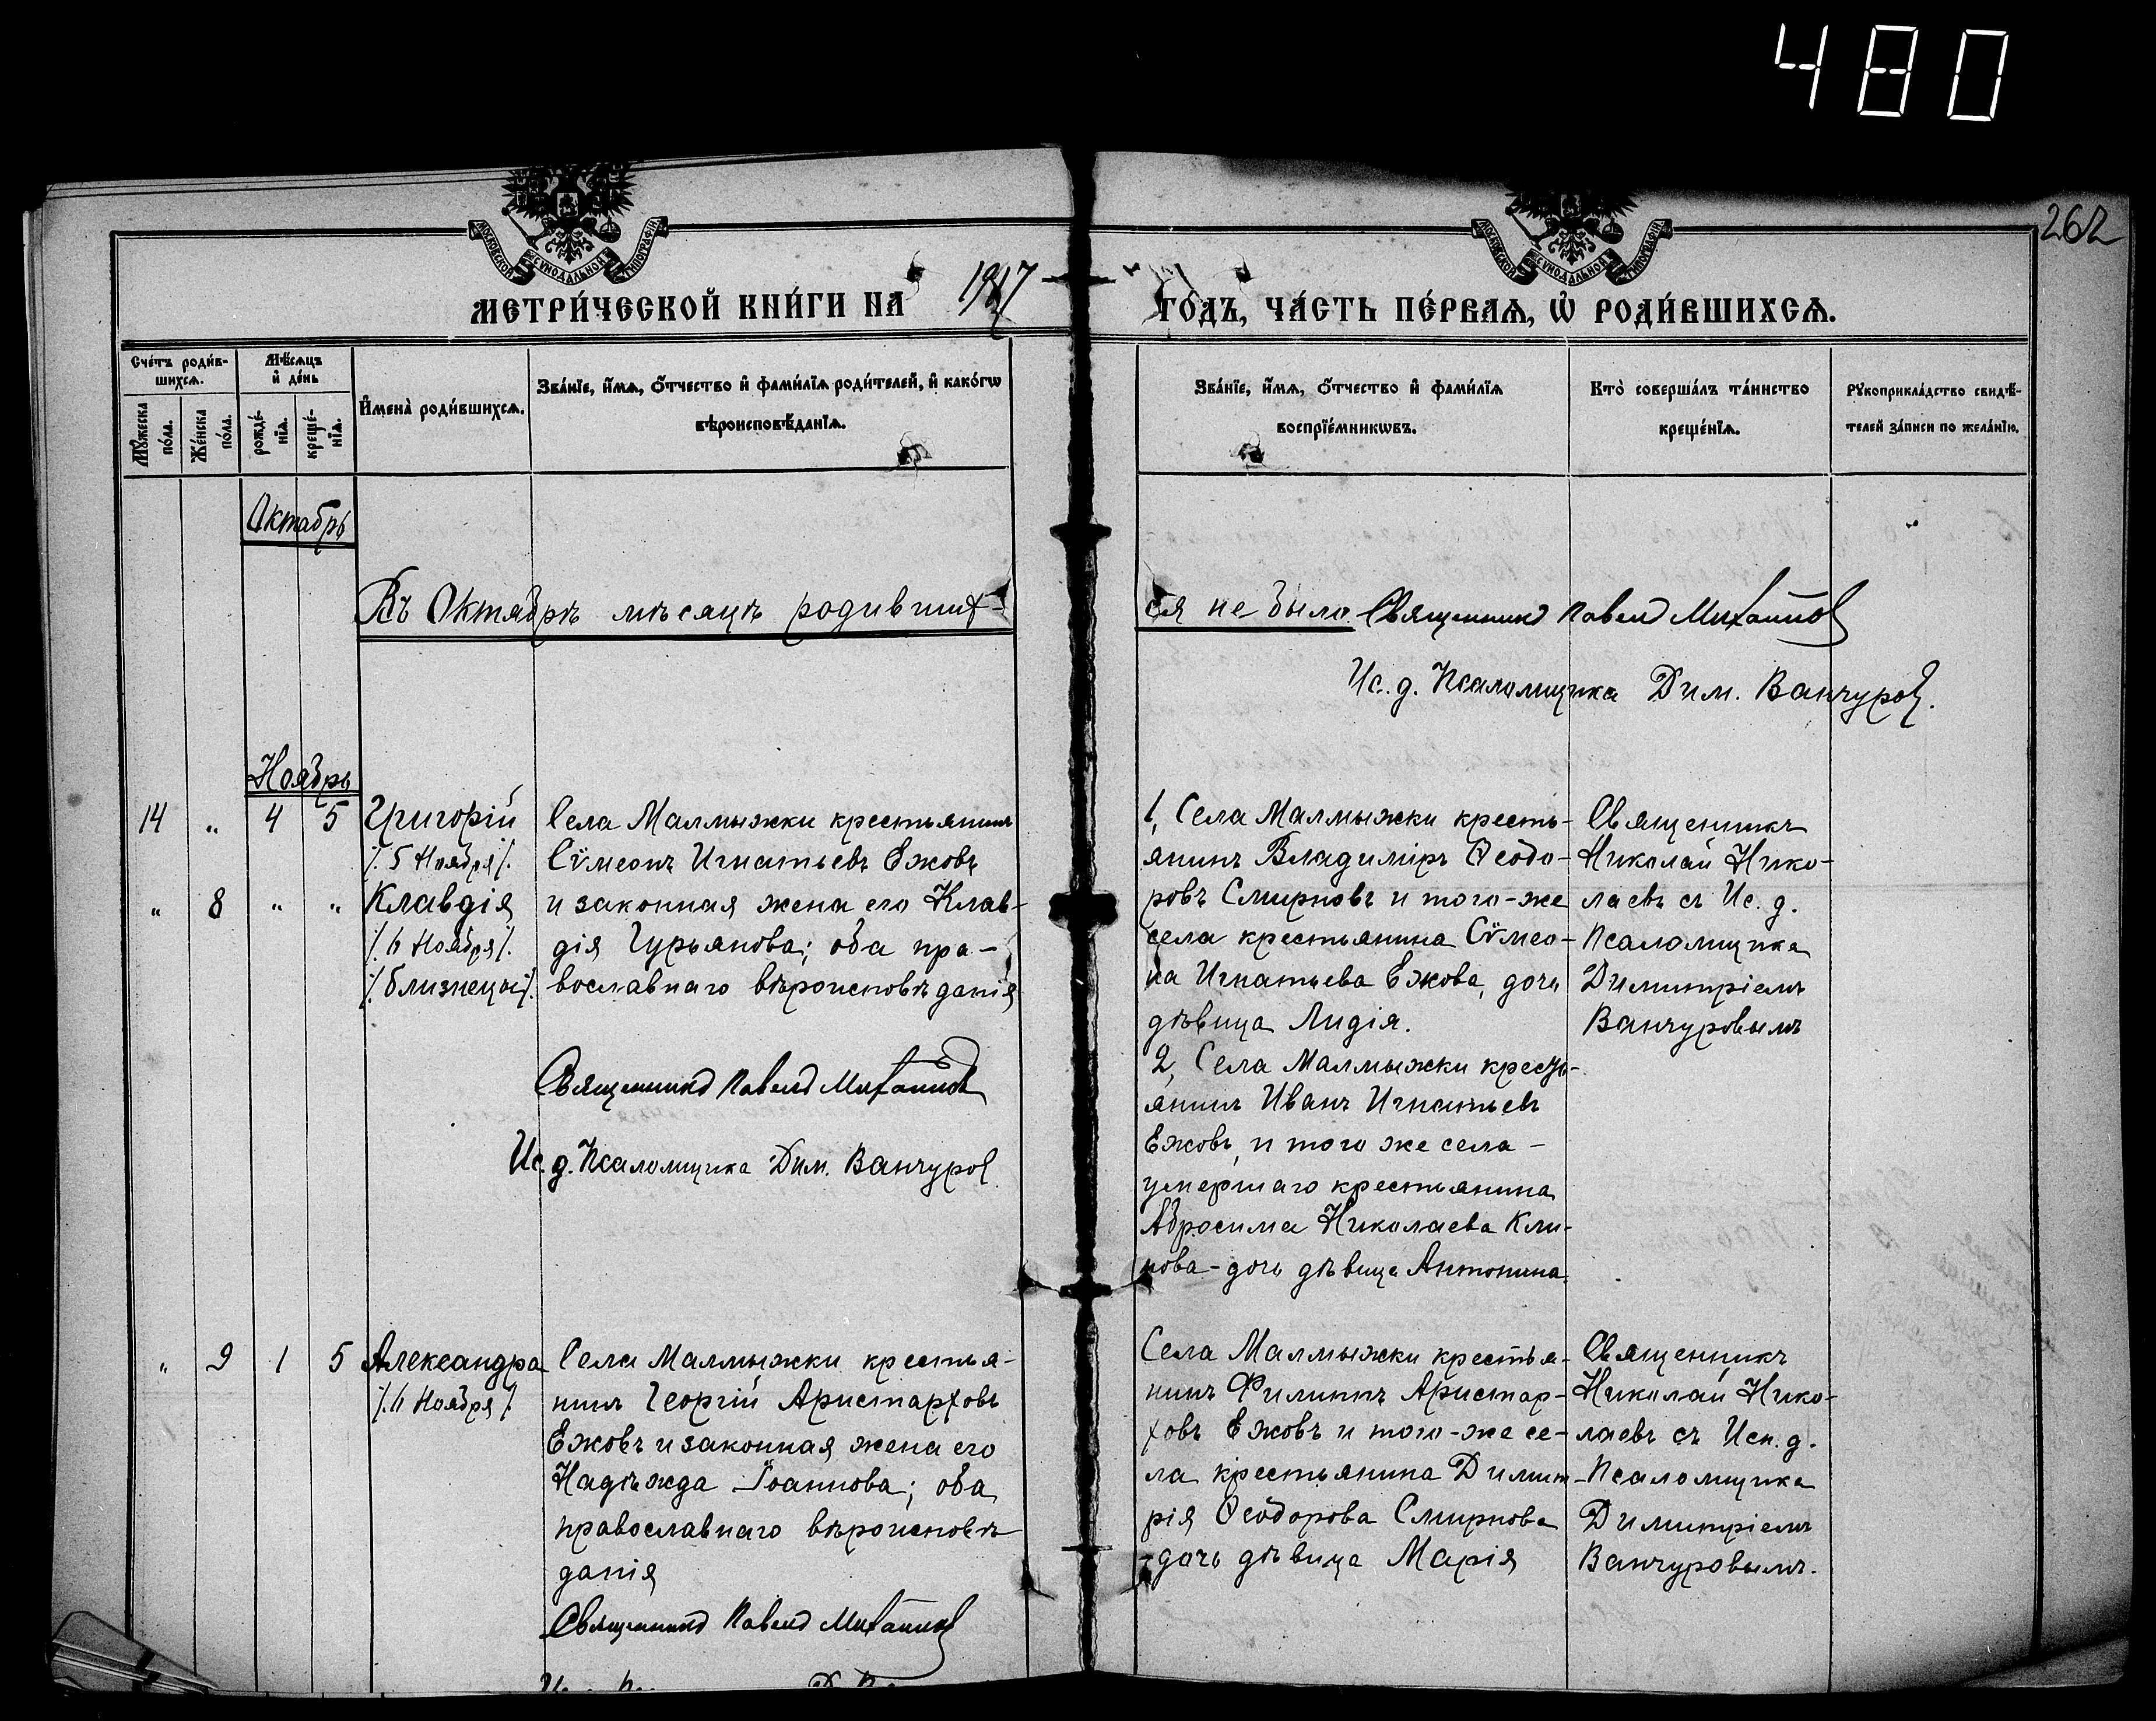 480
262
МОСКОВСКОЙ СѴНОДАЛЬНОЙ ТИПОГРАФІИ
МОСКОВСКОЙ СѴНОДАЛЬНОЙ ТИПОГРАФІИ
МЕТРИ́ЧЕСКОЙ КНИ́ГИ НА 1917 ГО́ДЪ, ЧА́СТЬ ПЕ́РВАѦ, Ѡ҆ РОДИ́ВШИХСѦ.
Сче́тъ роди́в-
шихсѧ.
Мѣ́сѧцъ
и҆ де́нь
Мꙋ́жеска
по́ла.
Же́нска
по́ла.
рожде́-
нїѧ.
креще́-
нїѧ.
И҆мена̀ роди́вшихсѧ.
Зва́нїе, и҆́мѧ, ѻ҆́тчество и҆ фами́лїѧ роди́телей, и҆ како́гѡ
вѣроисповѣ́данїѧ.
Зва́нїе, и҆́мѧ, ѻ҆́тчество и҆ фами́лїѧ
воспрїе́мникѡвъ.
Кто̀ соверша́лъ та́инство
креще́нїѧ.
Рꙋкоприкла́дство свидѣ́-
телей за́писи по жела́нїю.
Октябрь
Въ Октябрѣ мѣсяцѣ родивших-
ся не было. Священникъ Павелъ
Ис. д. Псаломщика Дим. Ванчуров.
Ноябрь
14 „ 4 5 Григорій
/. 5 Ноября /.
„ 8 „ „ Клавдія
/. 6 Ноября /.
/. близнецы /.
Села Малмыжки крестьянинъ
Сѵмеонъ Игнатьевъ Ежовъ
и законная жена его Клав-
дія Гурьянова; оба пра-
вославнаго вѣроисповѣданія
Священникъ Павелъ
Ис. д. Псаломщика Дим. Ванчуров
1, Села Малмыжки кресть-
янинъ Владиміръ Ѳеодо-
ровъ Смирновъ и того-же
села крестьянина Сѵмео-
на Игнатьева Ежова, дочь
дѣвица Лидія.
2, Села Малмыжки кресть-
янинъ Иванъ Игнатьевъ
Ежовъ, и того же села -
умершаго крестьянина
Абросима Николаева Кли-
нова - дочь дѣвица Антонина
Священникъ
Николай Нико-
лаевъ съ Ис. д.
Псаломщика
Димитріемъ
Ванчуровымъ
„ 9 1 5 Александра
/. 6 Ноября /.
Села Малмыжки крестья-
нинъ Георгій Аристарховъ
Ежовъ и законная жена его
Надѣжда Іоаннова; оба
православнаго вѣроисповѣ-
данія
Священникъ Павелъ
Села Малмыжки крестья-
нинъ Филиппъ Аристар-
ховъ Ежовъ и того-же се-
ла крестьянина Димит-
рія Ѳеодорова Смирнова
- дочь дѣвица Марія
Священникъ
Николай Нико-
лаевъ съ Исп. д.
Псаломщика
Димитріемъ
Ванчуровымъ.